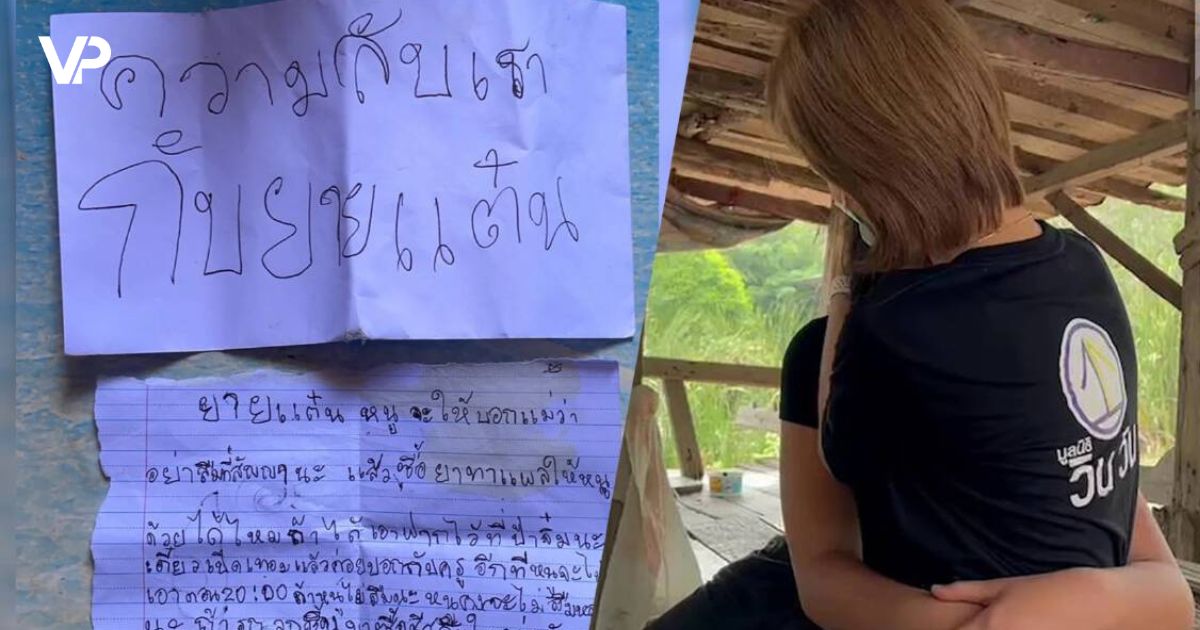 VP
ความลับเรา
กับยายแต๋น
ยายแต๋น หนูจะให้บอกแม่ว่า
อย่าลืมที่สัญญานะ แล้วซื้อยาทาแผลให้หนู
ด้วยได้ไหมถ้าได้เอาฝากไว้ที่ป้าจิ๋มนะ
เดี๋ยวเปิดเทอมแล้วค่อยบอกกับครู อีกที่หนูจะไป
เอาตอน 20:00 ถ้าหนูไม่ลืมนะ
มูลนิธิ
วิน วิน